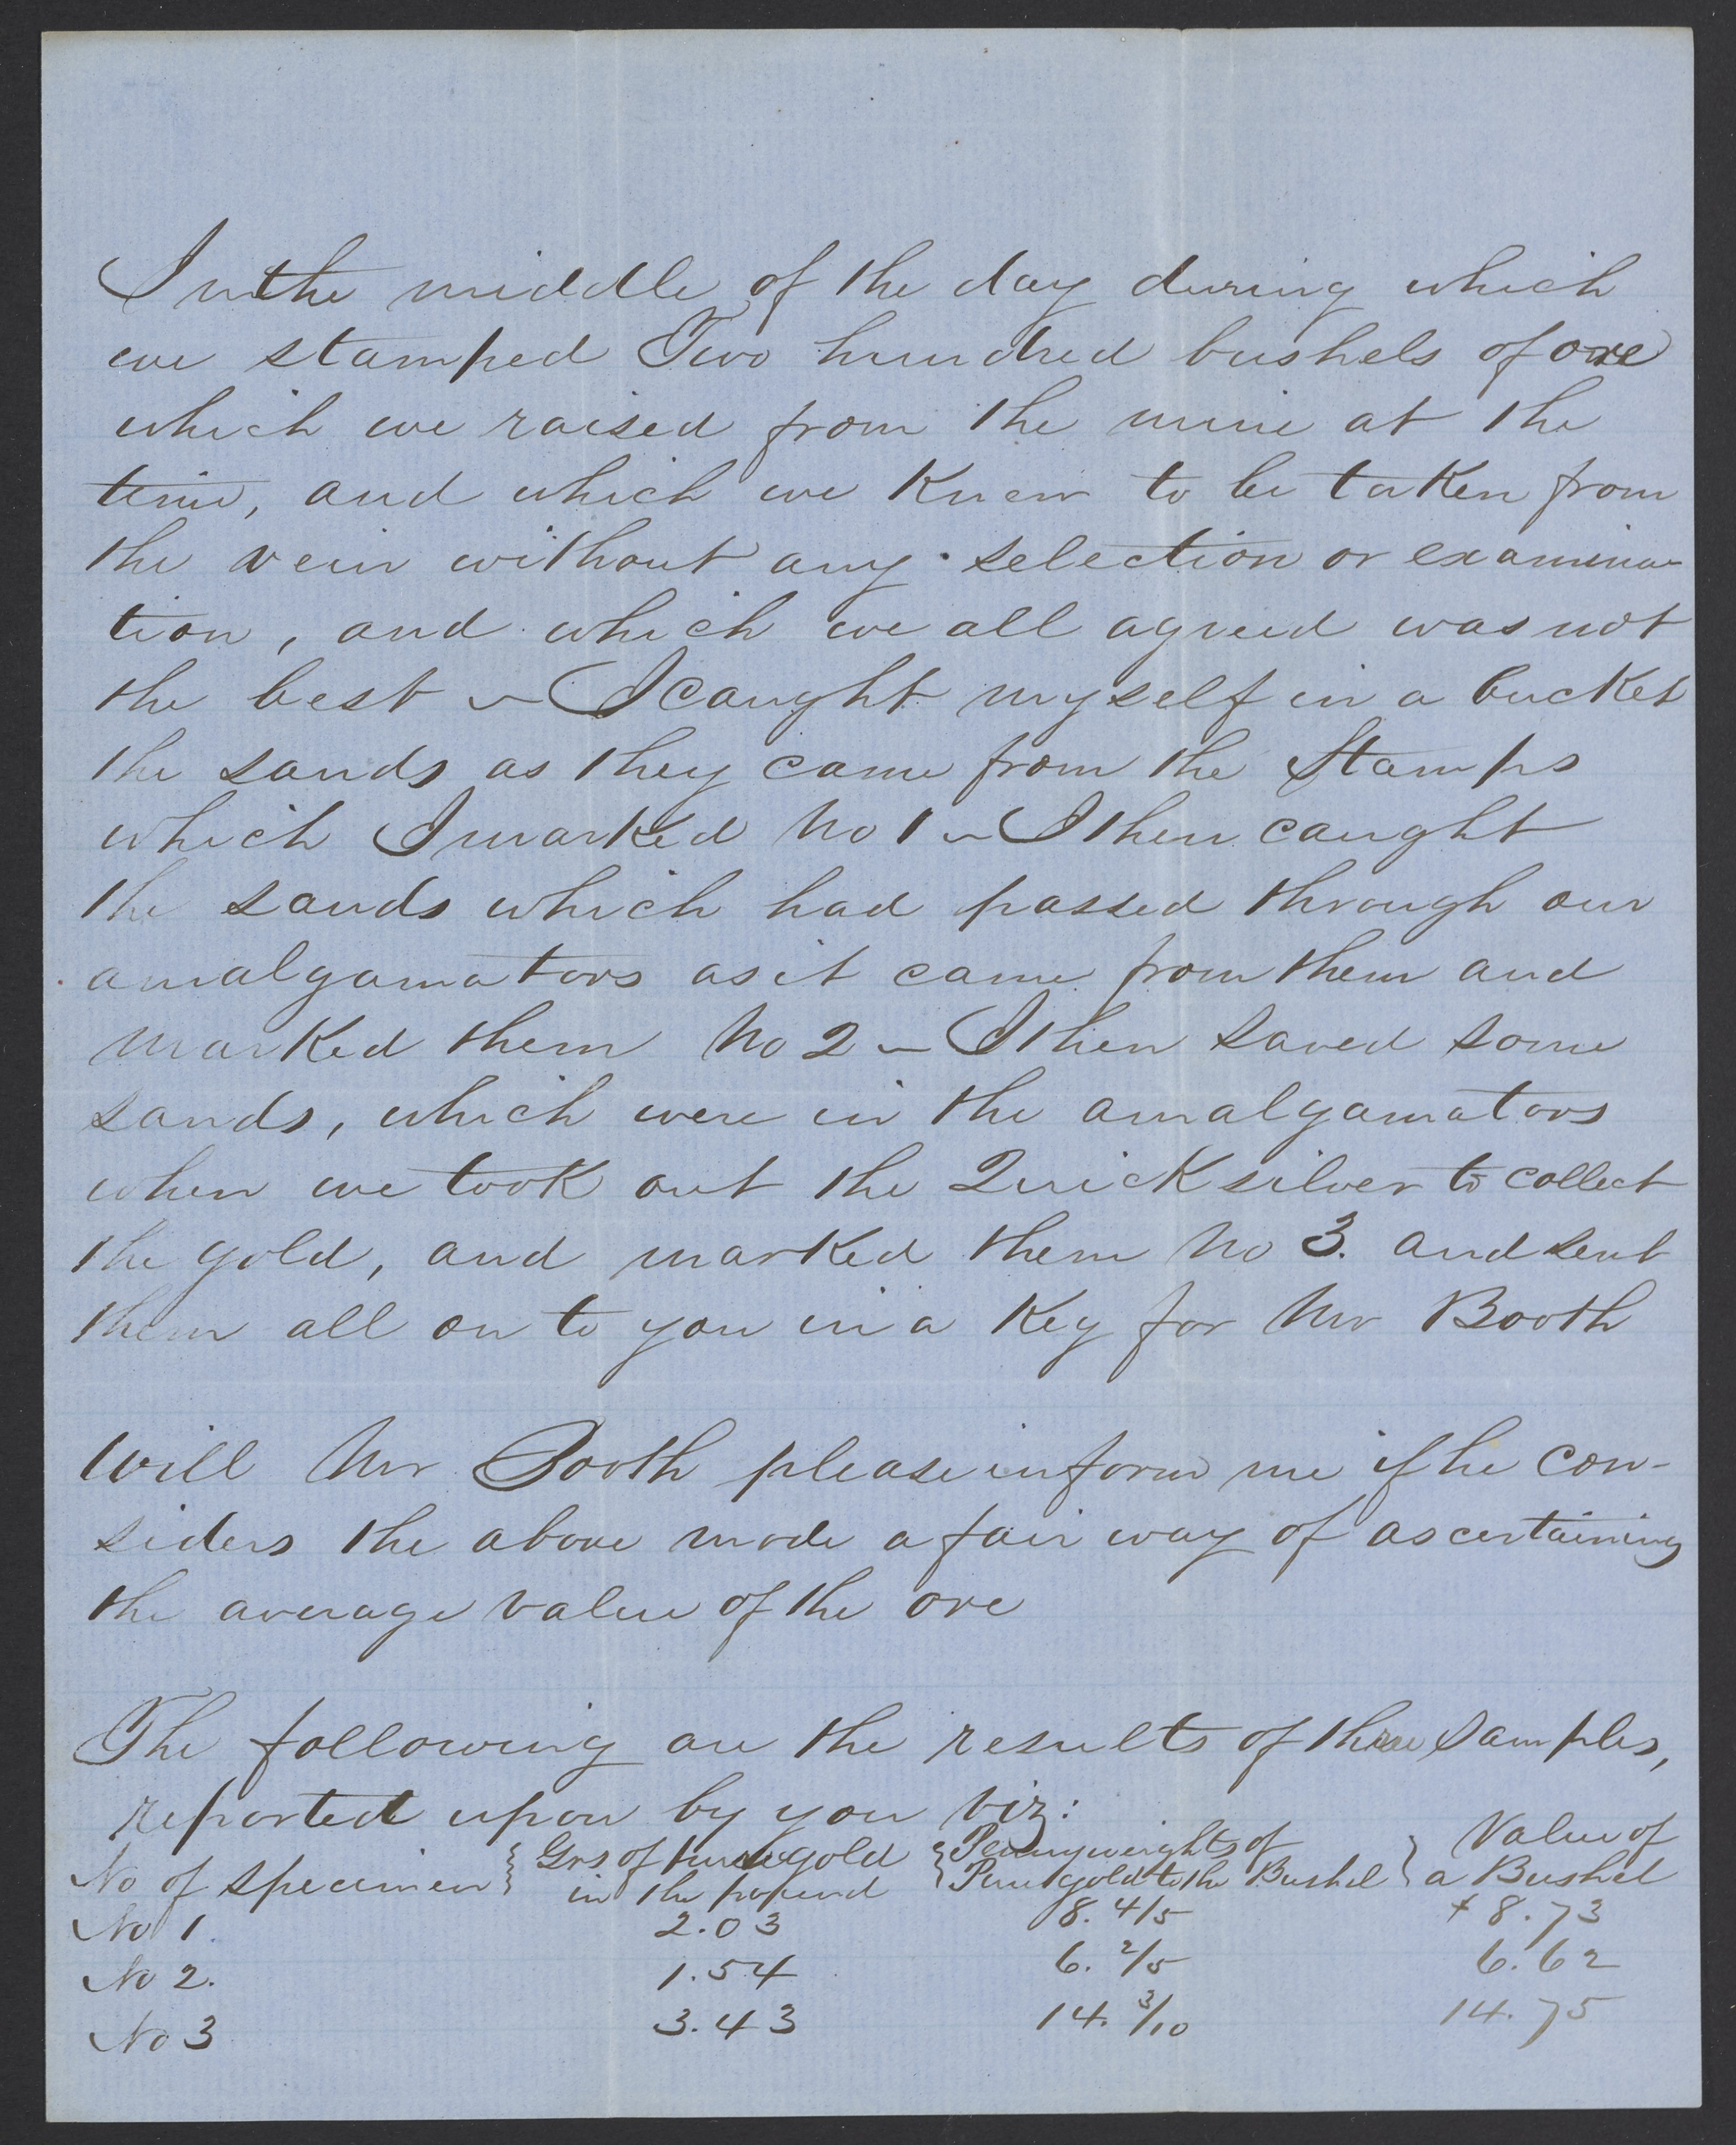 In the middle of the day during which
we stamped Two hundred bushels of ore
which we raised from the mine at the
time, and which we knew to be taken from
the vein without any selection or examina-
tion, and which we all agreed was not
the best ~ I caught myself in a bucket
the sands as they came from the Stamps
which I marked No 1 ~ I then caught
the sands which had passed through our
amalgamators as it came from them and
marked them No 2 ~ I then saved some
sands, which were in the amalgamators
when we took out the Quicksilver to collect
the gold, and marked them No 3. and sent
them all on to you in a Keg for Mr Booth
Will Mr Booth please inform me if he con-
siders the above mode a fair way of ascertaining
the average value of the ore
The following are the results of three samples,
reported upon by you viz:
No of specimen } Grs of pure gold in the pound } Pennyweights of Pure gold to the Bushel } Value of a Bushel
No 1. 2.03 8. 4/5 $ 8.73
No 2. 1.54 6. 2/5 6.62
No 3 3.43 14. 3/10 14.75